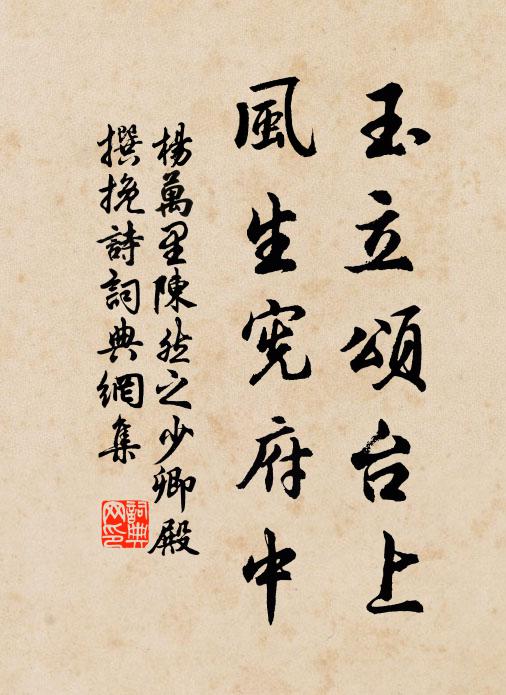 玉立頌台上
風生宪府中
楊萬里陳然之少卿殿
撰挽詩詞典網集
詞典网印